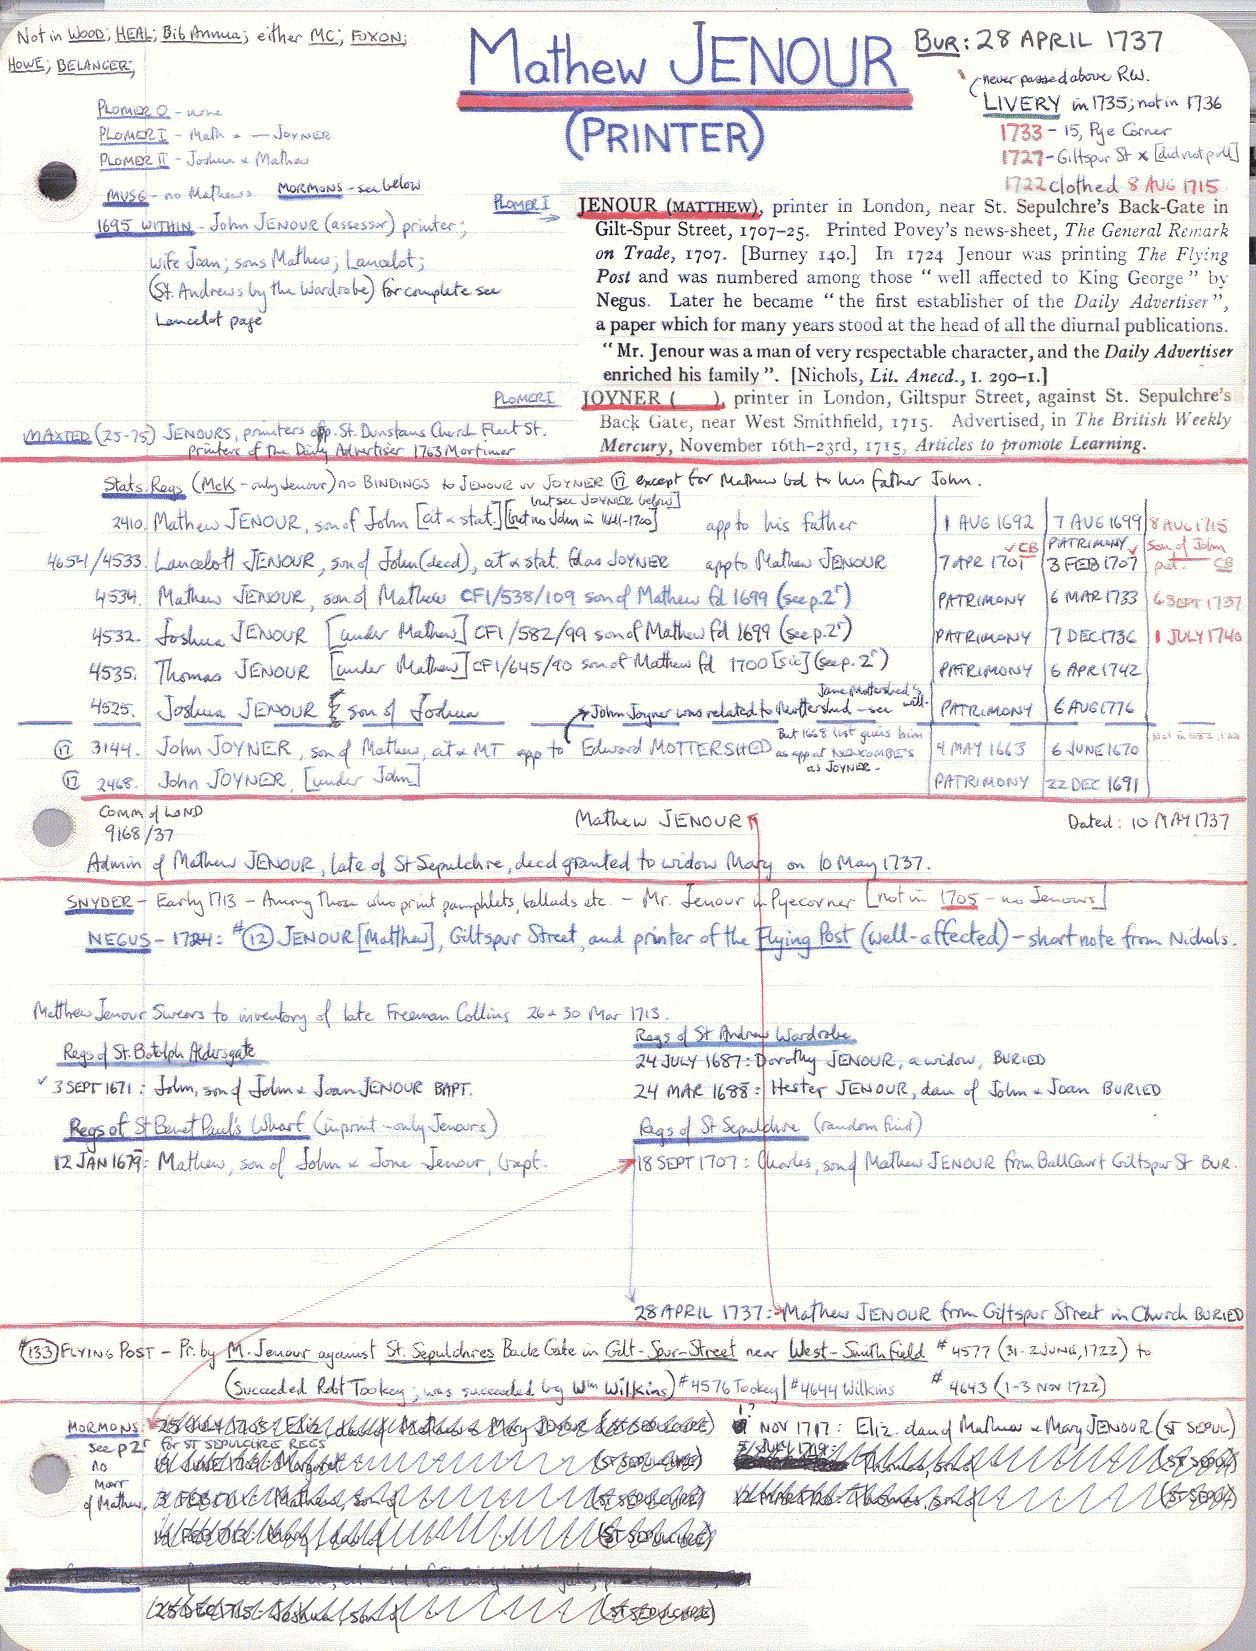 Not in WOOD; HEAL; Bib Annua; either MC; FOXON;
HOWE; BELANGER;
Mathew JENOUR
(PRINTER)
BUR: 28 APRIL 1737
(never passed above R.W.
LIVERY in 1735; not in 1736
1733 - 15, Pye Corner
1727 - Giltspur St x [did not poll]
1722 clothed 8 AUG 1715
PLOMER O - none
PLOMER I - Math & — JOYNER
PLOMER II - Joshua & Mathew
MUSG - no Mathews MORMONS - see below
1695 WITHIN - John JENOUR (assessor) printer;
wife Joan; sons Mathew; Lancelot;
(St. Andrews by the Wardrobe) for complete see
Lancelot page
PLOMER I
JENOUR (MATTHEW), printer in London, near St. Sepulchre's Back-Gate in
Gilt-Spur Street, 1707–25. Printed Povey's news-sheet, The General Remark
on Trade, 1707. [Burney 140.] In 1724 Jenour was printing The Flying
Post and was numbered among those “well affected to King George” by
Negus. Later he became “the first establisher of the Daily Advertiser”,
a paper which for many years stood at the head of all the diurnal publications.
“Mr. Jenour was a man of very respectable character, and the Daily Advertiser
enriched his family”. [Nichols, Lit. Anecd., 1. 290–1.]
PLOMER I
JOYNER ( ), printer in London, Giltspur Street, against St. Sepulchre's
Back Gate, near West Smithfield, 1715. Advertised, in The British Weekly
Mercury, November 16th–23rd, 1715, Articles to promote Learning.
MAXTED (25-75) JENOURS, printers opp. St. Dunstans Church Fleet St.
printers of the Daily Advertiser 1763 Mortimer
Stats. Regs (McK - only Jenour) no BINDINGS to JENOUR or JOYNER (17) except for Mathew bd to his father John.
[but see JOYNER below]
2410. Mathew JENOUR, son of John [cit & stat.] [but no John in 1641-1700] app to his father 1 AUG 1692 7 AUG 1699 8 AUG 1715
4654/4533. Lancelott JENOUR, son of John (decd), cit & stat. fd as JOYNER app to Mathew JENOUR 7 APR 1701 CB PATRIMONY 3 FEB 1707 son of John pat. CB
4534. Mathew JENOUR, son of Mathew CF1/538/109 son of Mathew fd 1699 (see p.2r) PATRIMONY 6 MAR 1733 6 SEPT 1737
4532. Joshua JENOUR [under Mathew] CF1/582/99 son of Mathew fd 1699 (see p.2r) PATRIMONY 7 DEC 1736 1 JULY 1740
4535. Thomas JENOUR [under Mathew] CF1/645/90 son of Mathew fd 1700 [sic] (see p.2r) PATRIMONY 6 APR 1742
4525. Joshua JENOUR son of Joshua PATRIMONY 6 AUG 1776
John Joyner was related to Mottershed - see Jane Mottershed's will.
(17) 3144. John JOYNER, son of Mathew, cit & MT app to Edward MOTTERSHED 4 MAY 1663 6 JUNE 1670
But 1668 list gives him as app at NEWCOMBE'S as JOYNER.
(17) 2468. John JOYNER, [under John] PATRIMONY 22 DEC 1691
Comm of LOND
9168/37
Mathew JENOUR
Dated: 10 MAY 1737
Admin of Mathew JENOUR, late of St Sepulchre, decd granted to widow Mary on 10 May 1737.
SNYDER - Early 1713 - Among those who print pamphlets, ballads etc. - Mr. Jenour in Pyecorner [not in 1705 - no Jenours]
NEGUS - 1724: #(12) JENOUR [Matthew], Giltspur Street, and printer of the Flying Post (well-affected) - short note from Nichols.
Matthew Jenour Swears to inventory of late Freeman Collins 26 & 30 Mar 1713.
Regs of St. Botolph Aldersgate
3 SEPT 1671: John, son of John & Joan JENOUR BAPT.
Regs of St Benet Paul's Wharf (in print - only Jenours)
12 JAN 1679: Mathew, son of John & Jone Jenour, bapt.
Regs of St Andrew Wardrobe
24 JULY 1687: Dorothy JENOUR, a widow, BURIED
24 MAR 1688: Hester JENOUR, dau of John & Joan BURIED
Regs of St Sepulchre (random find)
18 SEPT 1707: Charles, son of Mathew JENOUR from Ball Court Giltspur St BUR.
28 APRIL 1737: Mathew JENOUR from Giltspur Street in Church BURIED
#(133) FLYING POST - Pr. by M. Jenour against St. Sepulchres Back Gate in Gilt-Spur-Street near West-Smithfield # 4577 (31-2 JUNE, 1722) to
(Succeeded Robt Tookey; was succeeded by Wm Wilkins) #4576 Tookey / #4644 Wilkins # 4643 (1-3 NOV 1722)
MORMONS
see p 2r for ST SEPULCHRE REGS
no
marr
of Mathew.
25 JULY 1705: Eliz. dau of Mathew & Mary JENOUR (ST SEPULCHRE)
19 JUNE 1709: Margaret (ST SEPULCHRE)
3 FEB Mathew, son of (ST SEPULCHRE)
14 FEB 1713: Mary dau of (ST SEPULCHRE)
25 DEC 1715: Joshua, son of (ST SEPULCHRE)
NOV 1717: Eliz. dau of Mathew & Mary JENOUR (ST SEPUL)
5 JULY 1719: Thomas, son of (ST SEPUL)
12 MAR Thomas, son of (ST SEPUL)